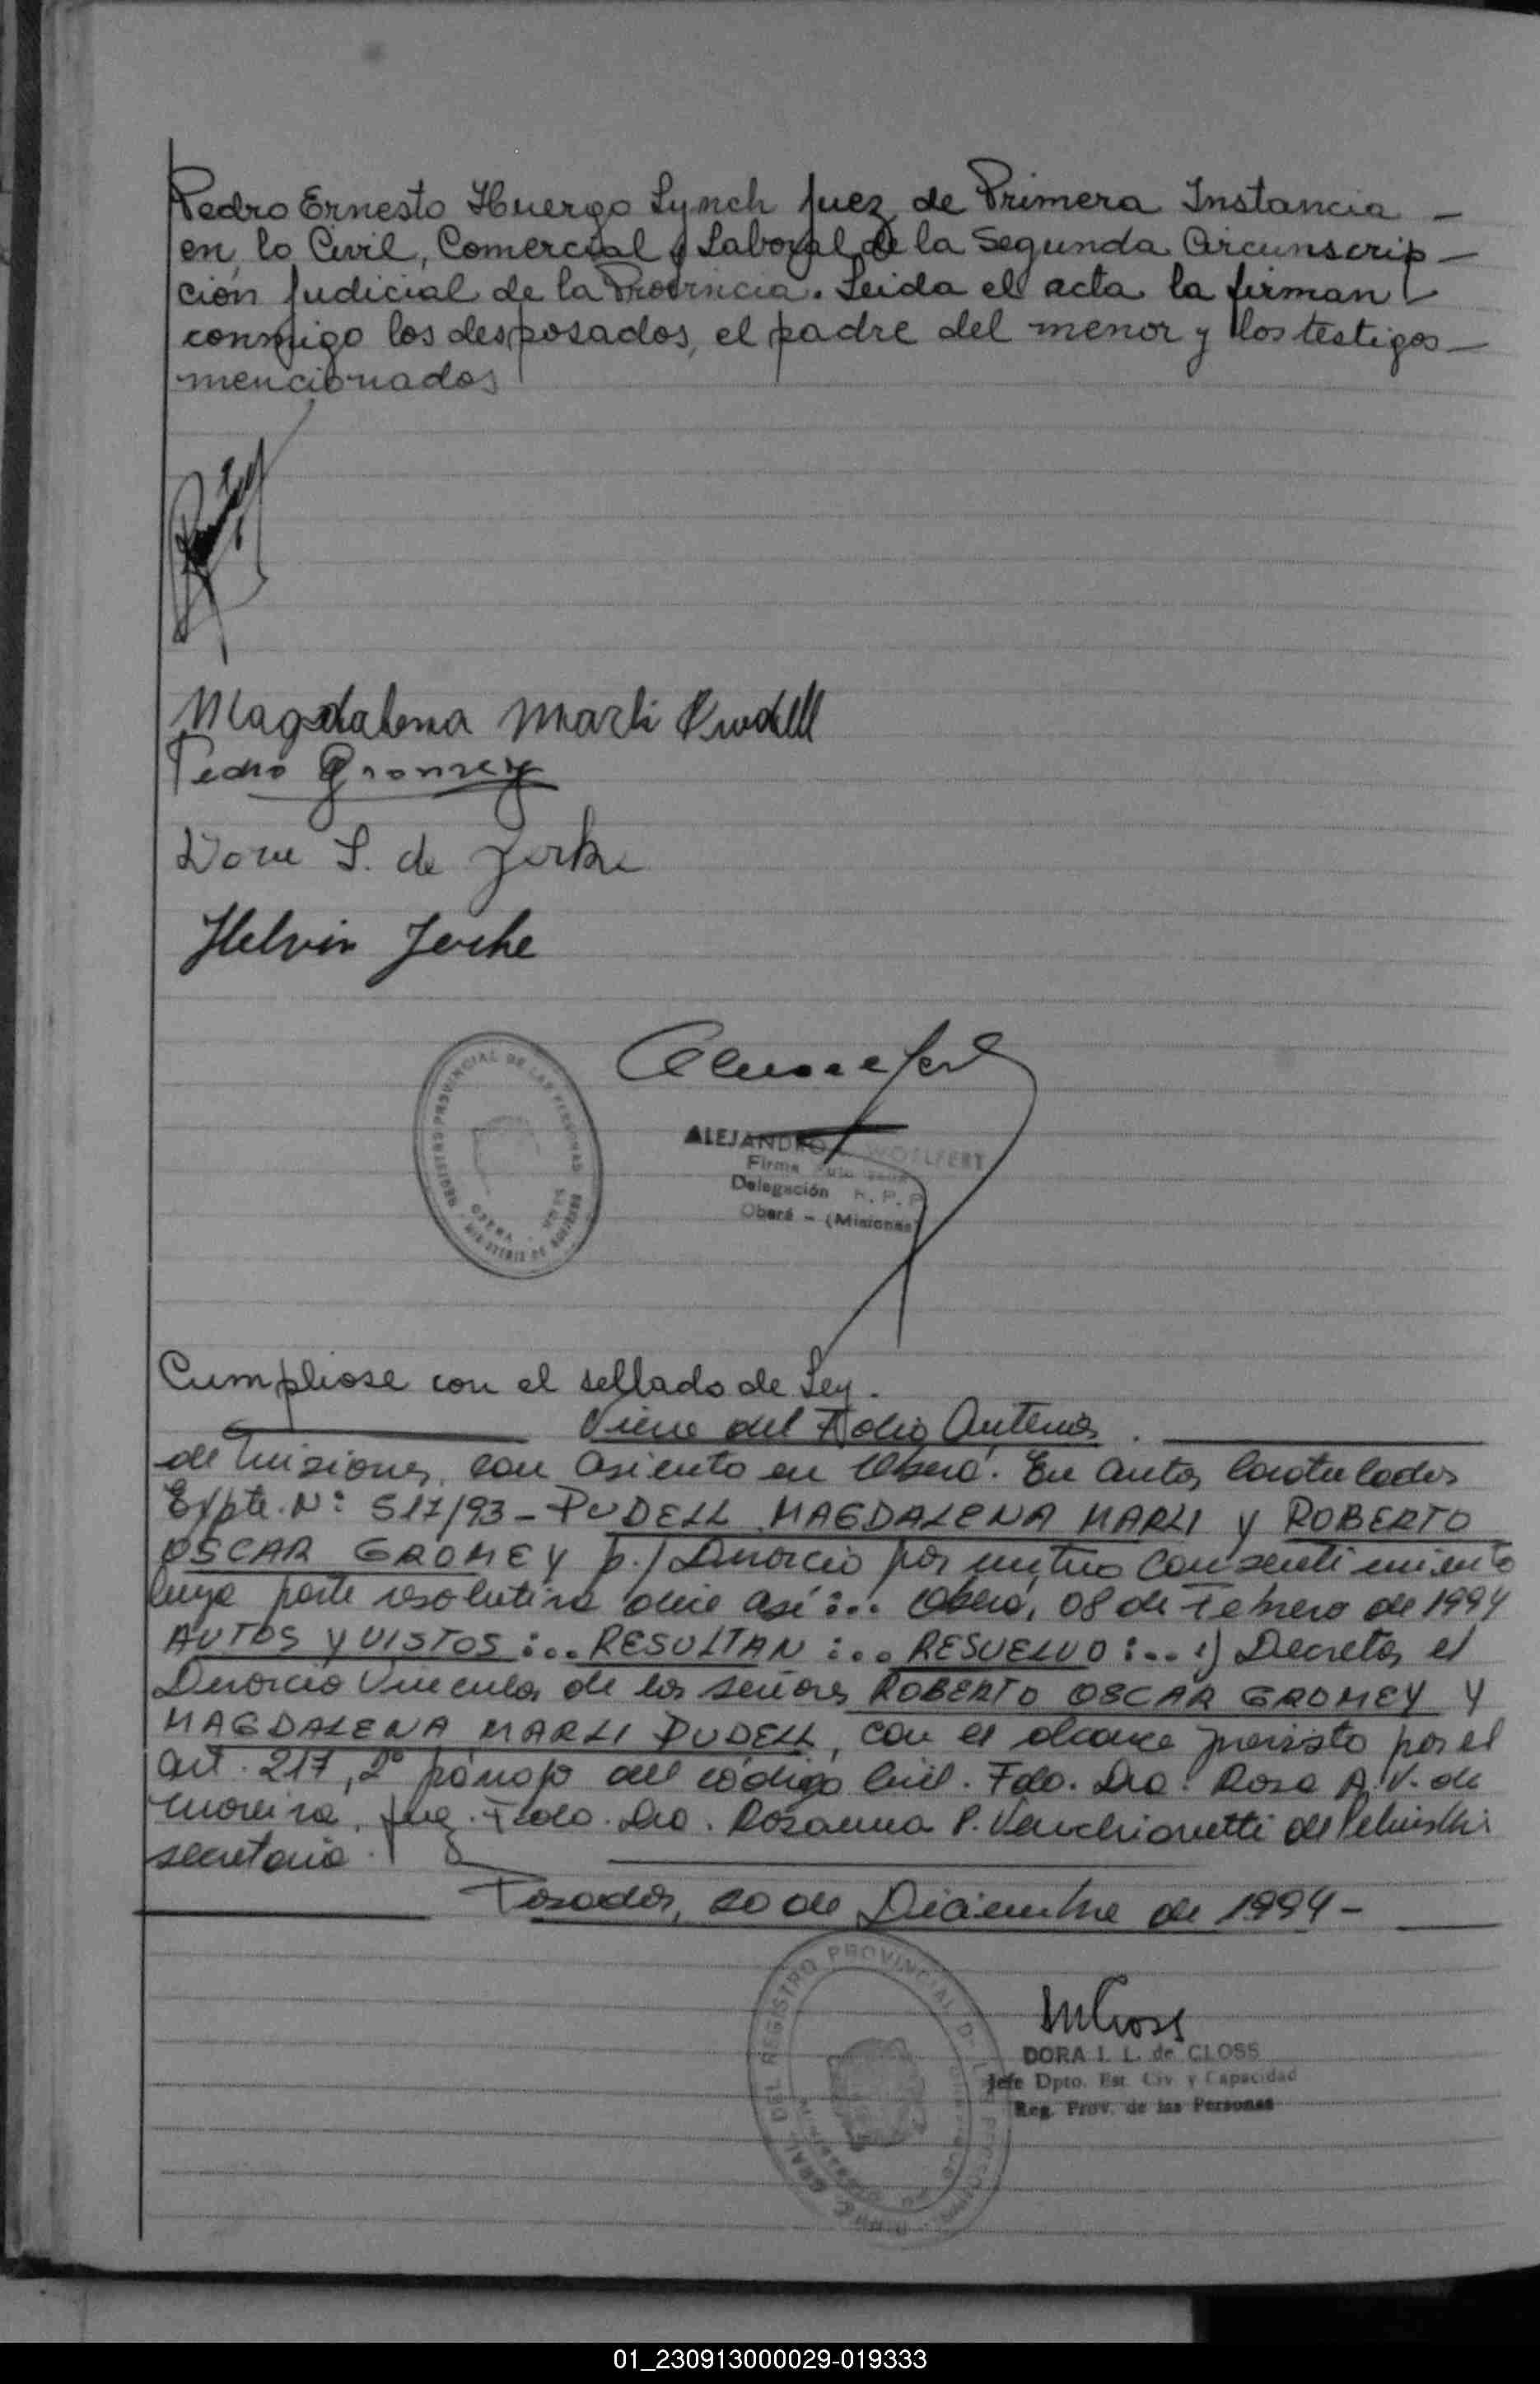 Pedro Ernesto Huergo Lynch Juez de Primera Instancia -
en lo Civil, Comercial y Laboral de la Segunda Circunscrip -
ción Judicial de la Provincia. Leida el acta la firman -
conmigo los desposados, el padre del menor y los testigos -
mencionados
Magdalena Marli Pudell
Pedro Gromey
Dora S. de Jerke
Helvin Jerke
REGISTRO PROVINCIAL DE LAS PERSONAS
MINISTERIO DE GOBIERNO
ALEJANDRO WOELFERT
Firma
Delegación R. P. P.
Oberá - (Misiones)
Cumpliose con el sellado de Ley.
Viene del Folio Anterior.
de Misiones, con asiento en Oberá. En autos caratulados
Expte. Nº: 517/93 - PUDELL MAGDALENA MARLI y ROBERTO
OSCAR GROMEY p./ Divorcio por mutuo Consentimiento
cuya parte resolutiva dice así:... Oberá, 08 de Febrero de 1994
AUTOS Y VISTOS:... RESULTAN:... RESUELVO:... 1) Decretar el
Divorcio Vincular de los señores ROBERTO OSCAR GROMEY Y
MAGDALENA MARLI PUDELL, con el alcance previsto por el
art. 217, 2º párrafo del código Civil. Fdo. Dra. Rosa A. V. de
Moreira, Juez. Fdo. Dra. Rosanna P. Venchiarutti de
secretaria.
Posadas, 20 de Diciembre de 1994 -
DIREC. GRAL. DEL REGISTRO PROVINCIAL DE LAS PERSONAS
DORA I. L. de CLOSS
Jefe Dpto. Est. Civ. y Capacidad
Reg. Prov. de las Personas
01_230913000029-019333